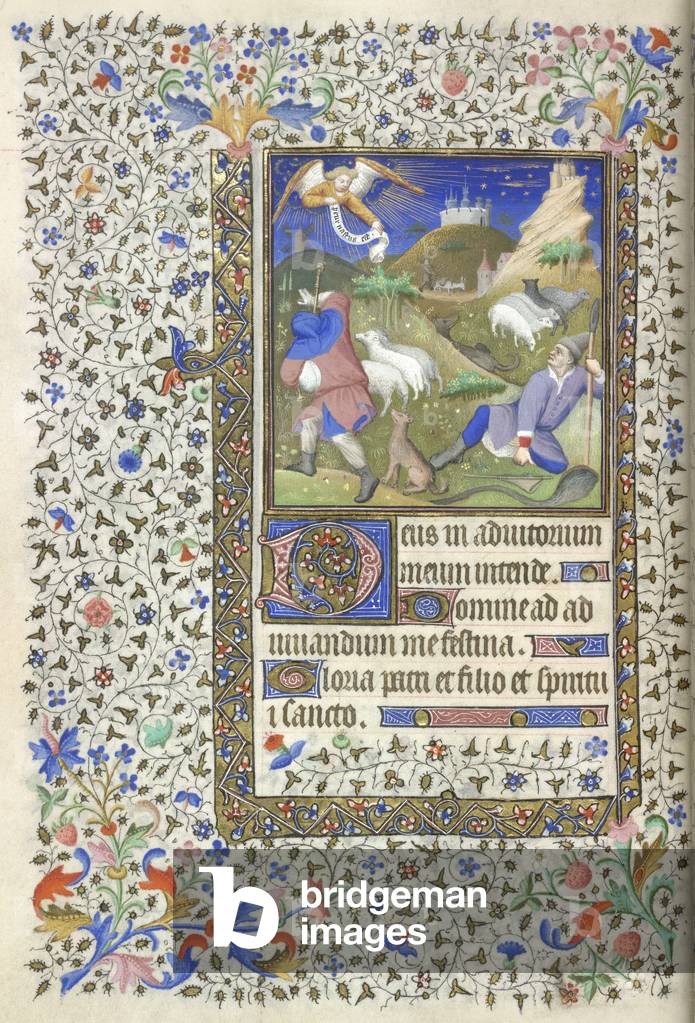 puer natus est
Deus in adiutorium
meum intende.
Domine ad ad
iuuandum me festina.
Gloria patri et filio et spiritu
i sancto.
b bridgeman
images